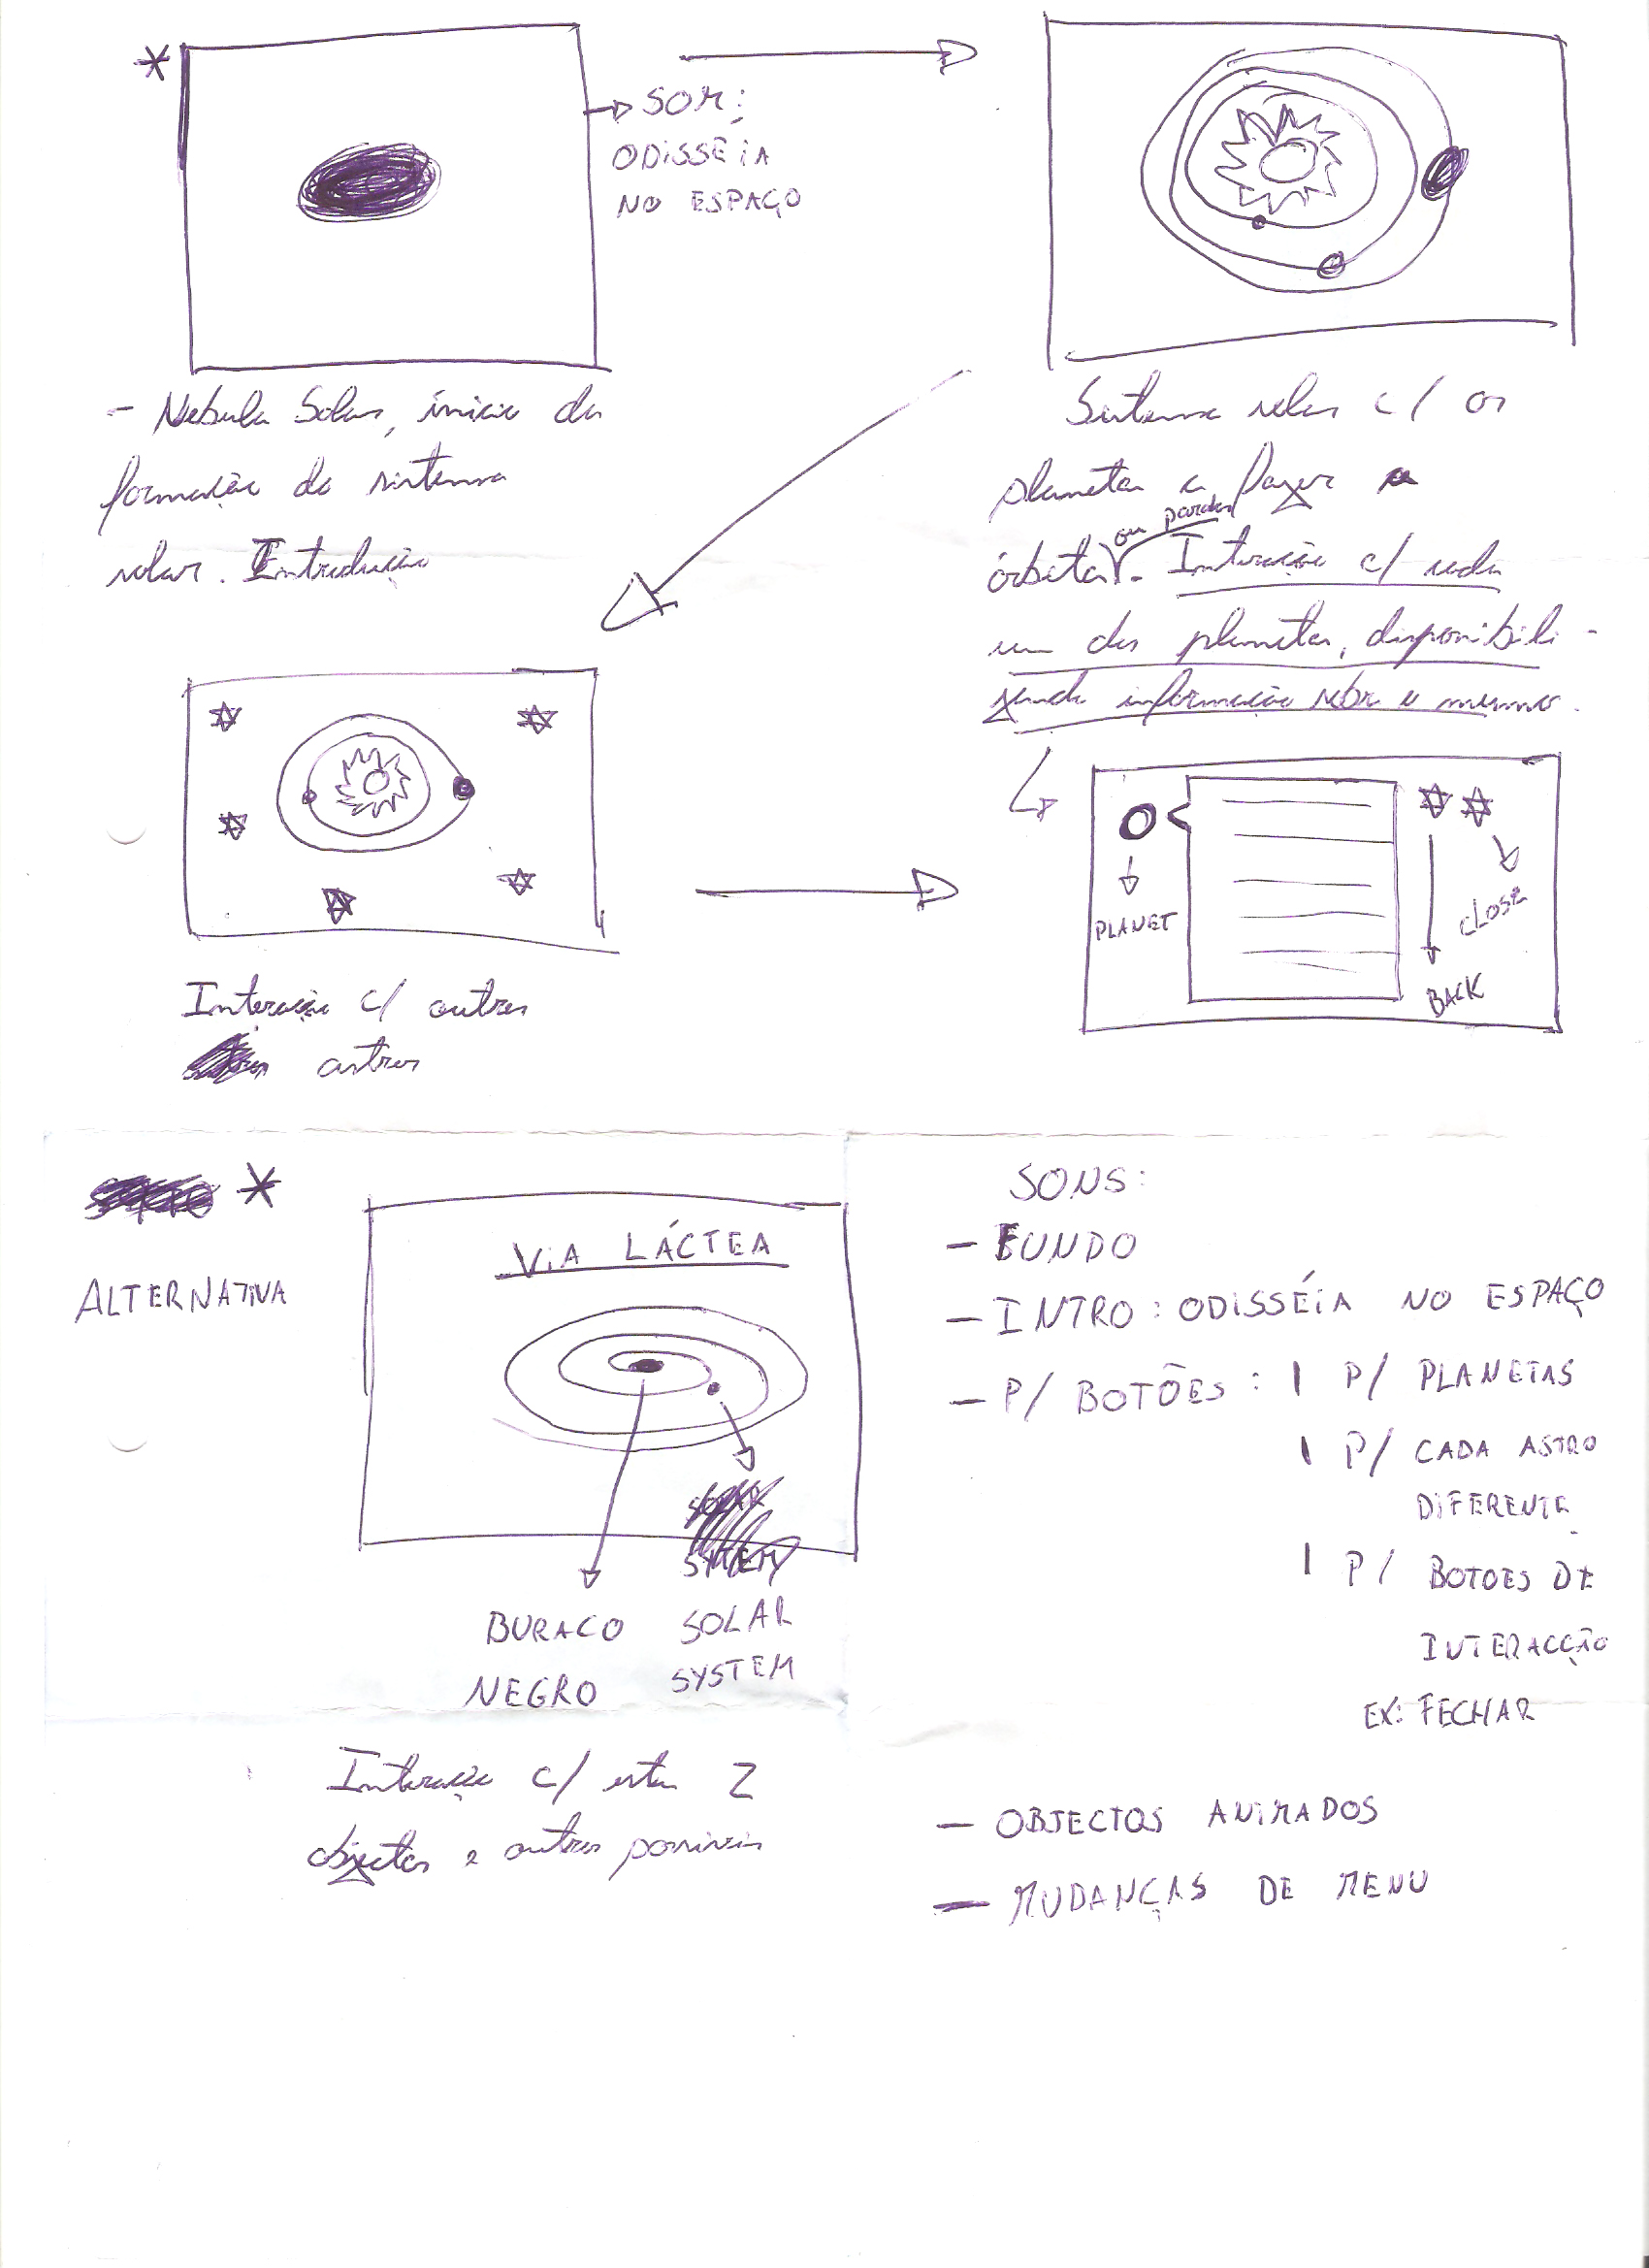 * → SOM:
ODISSÉIA
NO ESPAÇO
- Nebula Solar, início da
formação do sistema
solar. Introdução
Sistema solar c/ os
planetas a fazer a
órbita ou parados - Interação c/ cada
um dos planetas, disponibili-
zando informação sobre o mesmo.
PLANET
CLOSE
BACK
Interação c/ outros
astros
*
ALTERNATIVA
VIA LÁCTEA
BURACO
NEGRO
SOLAR
SYSTEM
Interação c/ estes 2
objectos e outros possíveis
SONS:
- FUNDO
- INTRO: ODISSÉIA NO ESPAÇO
- P/ BOTÕES: 1 P/ PLANETAS
1 P/ CADA ASTRO
DIFERENTE
1 P/ BOTOES DE
INTERACÇÃO
EX: FECHAR
- OBJECTOS ANIMADOS
- MUDANÇAS DE MENU